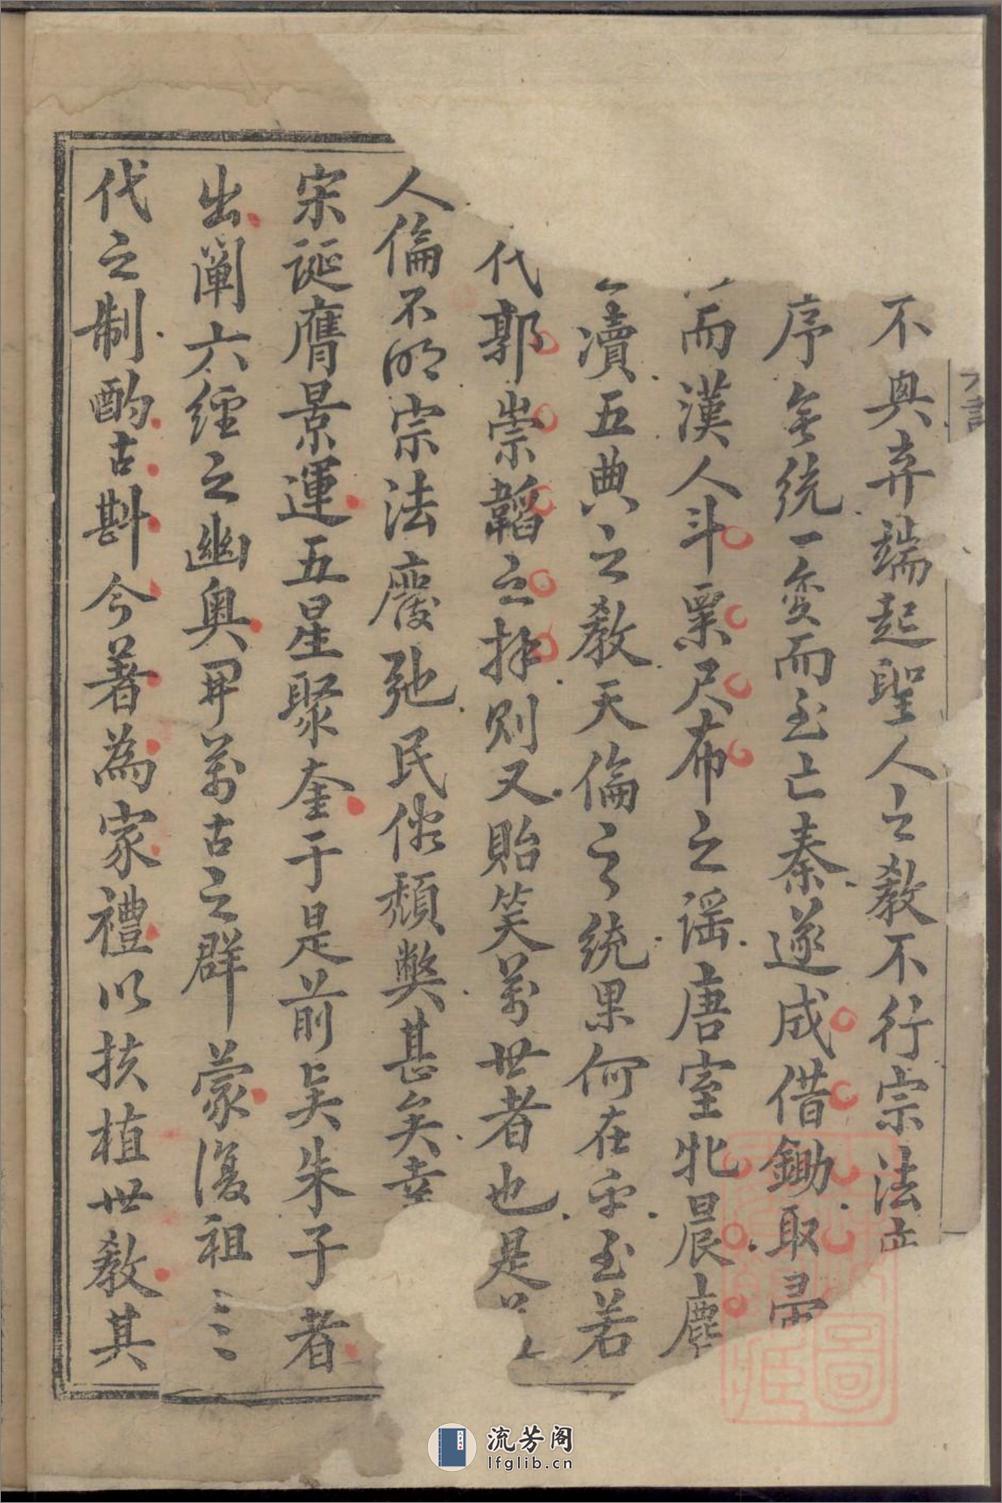 不與弃端起聖人之教不行宗法
序無統一变而至亡秦遂成借鋤取帚
而漢人斗粟尺布之谣唐室牝晨麀
瀆五典之教天倫之统果何在乎至若
代郭崇韜之拜則又貽笑萬世者也是
人倫不明宗法廢弛民俗頹弊甚矣幸
宋诞膺景運五星聚奎于是前矣朱子者
出闡六經之幽奧開萬古之群蒙復祖三
代之制酌古斟今著為家禮以扶植世教其
流芳阁
lfglib.cn